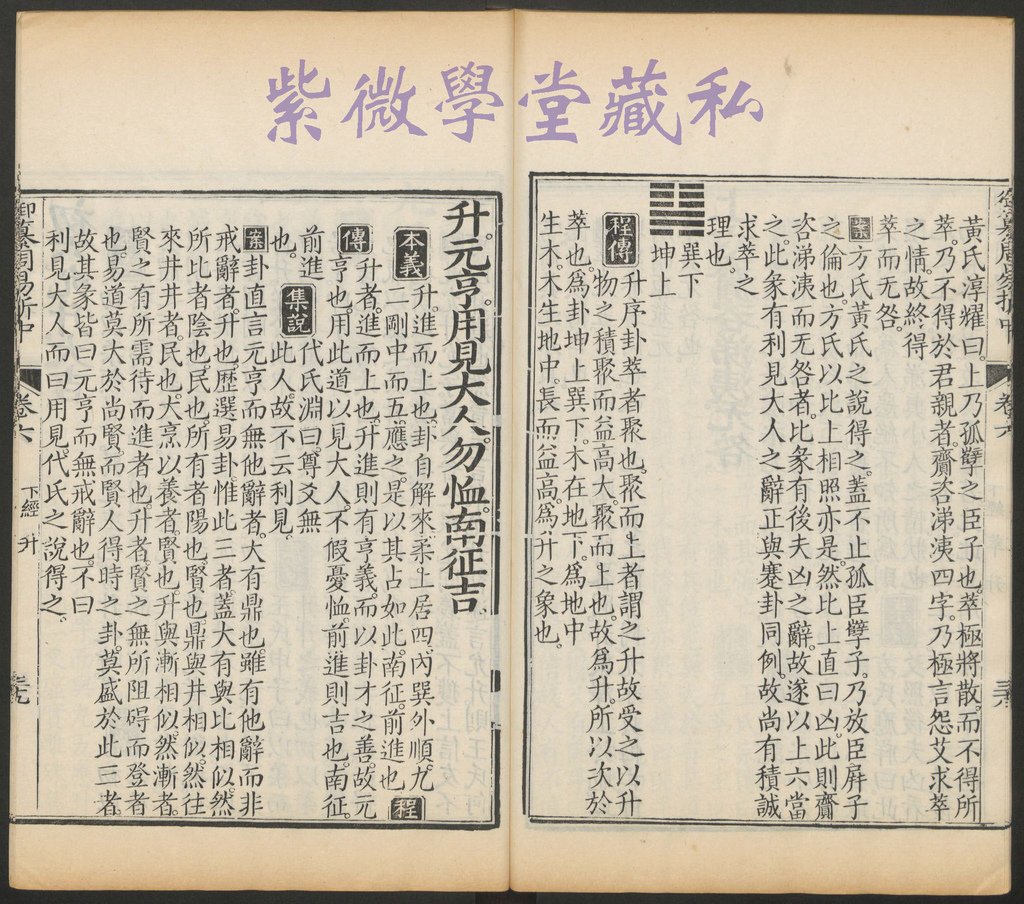 紫微學堂藏私
御纂周易折中
卷六
黃氏淳耀曰。上乃孤孽之臣子也。萃極將散。而不得所
萃。乃不得於君親者。齎咨涕洟四字。乃極言怨艾求萃
之情。故終得
萃而无咎。
案方氏黃氏之說得之。蓋不止孤臣孽子。乃放臣屏子
之倫也。方氏以比上相照亦是。然比上直曰凶。此則齎
咨涕洟而无咎者。比彖有後夫凶之辭。故遂以上六當
之。此彖有利見大人之辭。正與蹇卦同例。故尚有積誠
求萃之
理也。
巽下
坤上
程傳 升序卦萃者聚也。聚而上者謂之升故受之以升
物之積聚而益高大。聚而上也。故爲升。所以次於
萃也。爲卦坤上巽下。木在地下。爲地中
生木。木生地中。長而益高。爲升之象也。
升。元亨。用見大人。勿恤。南征吉。
本義 升。進而上也。卦自解來。柔上居四。內巽外順。九
二剛中而五應之。是以其占如此。南征。前進也 程
傳 升者。進而上也。升進則有亨義。而以卦才之善。故元
亨也。用此道以見大人。不假憂恤。前進則吉也。南征
前進
也。集說 代氏淵曰。尊爻無
此人。故不云利見。
案卦直言元亨。而無他辭者。大有鼎也。雖有他辭而非
戒辭者。升也。歷選易卦。惟此三者。蓋大有與比相似。然
所比者陰也。民也。所有者陽也。賢也。鼎與井相似。然往
來井井者。民也。大烹以養者。賢也。升與漸相似。然漸者。
賢之有所需待而進者也。升者。賢之無所阻碍而登者
也。易道莫大於尚賢。而賢人得時之卦。莫盛於此三者。
故其彖皆曰元亨。而無戒辭也。不曰
利見大人。而曰用見。代氏之說得之。
御纂周易折中
卷六
下經 升